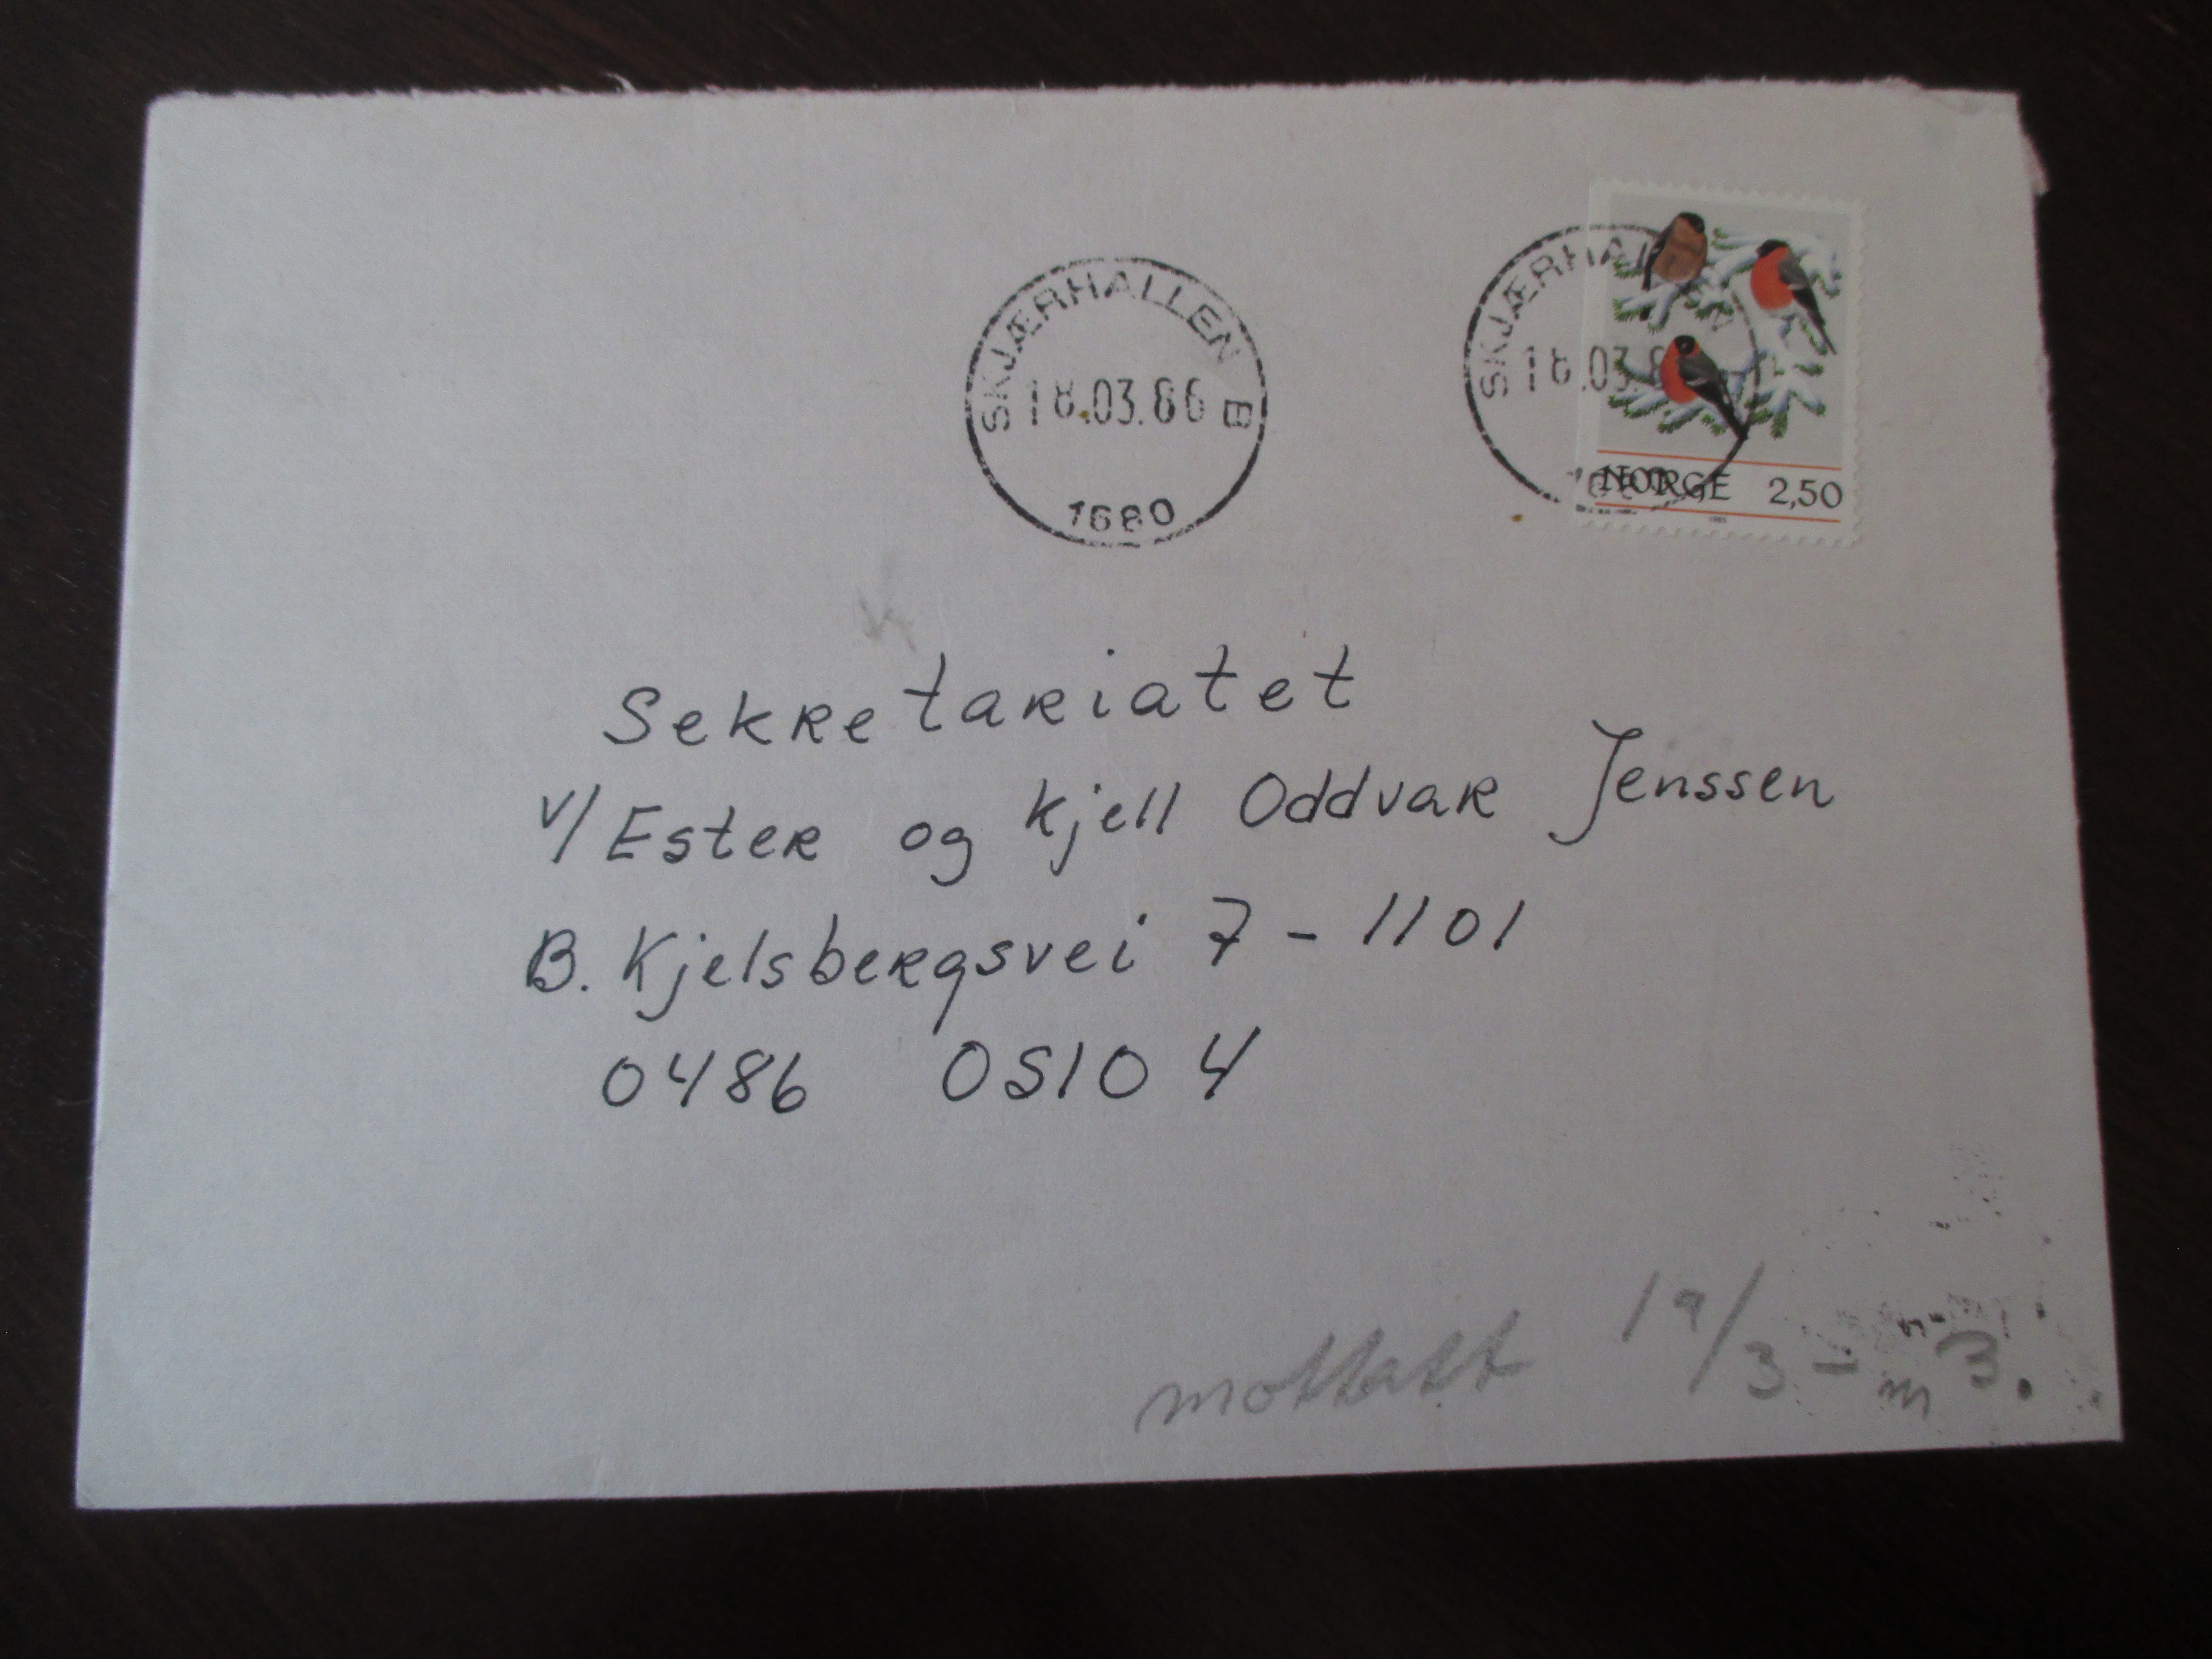 SKJÆRHALLEN B
18.03.86
1680
SKJÆRHALLEN
18.03.8
NORGE 2,50
1985
Sekretariatet
v/ Ester og Kjell Oddvar Jenssen
B. Kjelsbergsvei 7 - 1101
0486 OSlO 4
mottatt 19/3 - m 3.